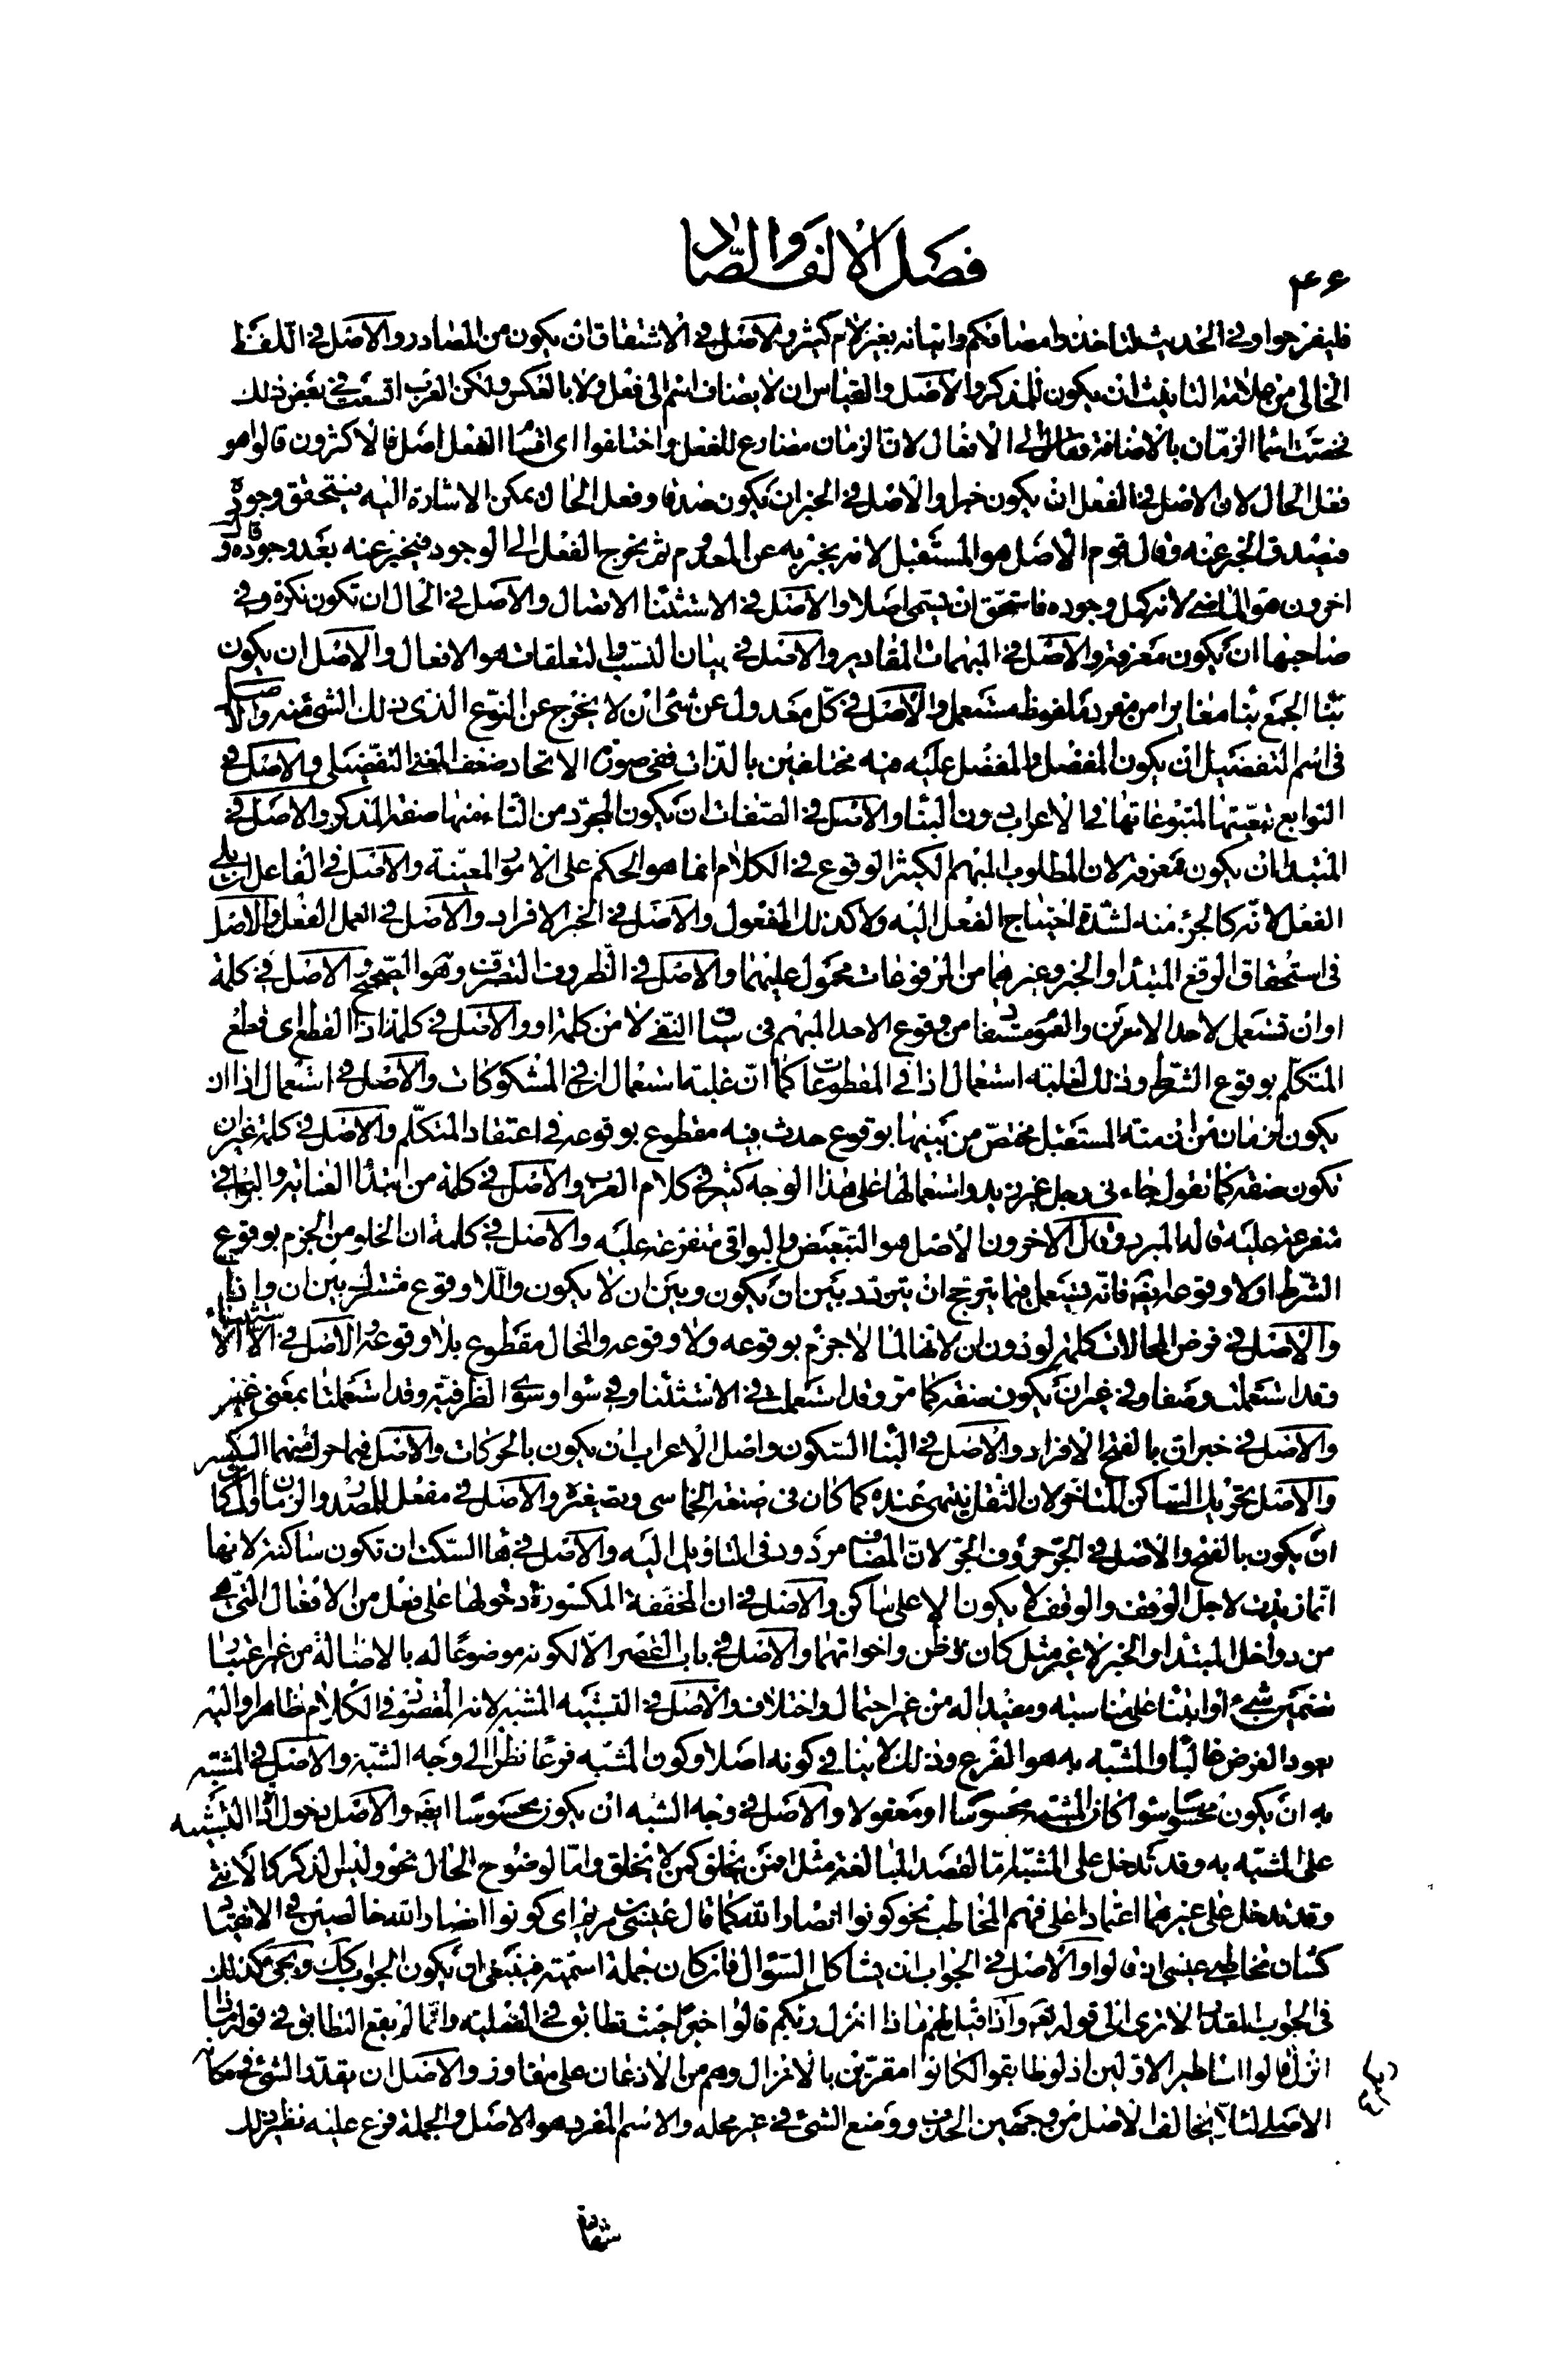 ۴۶
فصل الالف والصاد
فليفرحوا وفي الحديث لتاخذوا مصافكم واتيانه بغير لام كثير والاصل في الاشتقاق ان يكون من المصادر والاصل في اللفظ
الخالي من علامة التانيث ان يكون للمذكر والاصل والقياس ان لا يضاف اسم الى فعل ولا بالعكس ولكن العرب اتسعت في بعض ذلك
فخصت اسماء الزمان بالاضافة الى الافعال لان الزمان مضارع للفعل واختلفوا اى اقسام الفعل اصل فالاكثرون قالوا هو
فعل الحال لان الاصل في الفعل ان يكون خبرا والاصل في الخبر ان يكون صدقا وفعل الحال يمكن الاشارة اليه فيتحقق وجوده
فيصدق الخبر عنه وقال قوم الاصل هو المستقبل لانه يخبر به عن المعدوم ثم يخرج الفعل الى الوجود فيخبر عنه بعد وجوده وقال
اخرون هو الماضي لانه كمل وجوده فاستحق ان يسمى اصلا والاصل في الاستثناء الاتصال والاصل في الحال ان تكون نكرة وفي
صاحبها ان يكون معرفة والاصل في المبهمات المقادير والاصل في بيان النسب والتعلقات هو الافعال والاصل ان يكون
بناء الجمع بناء مغايرا من مفرد ملفوظ مستعمل والاصل في كل معدول عن شئ ان لا يخرج عن النوع الذى ذلك الشئ منه والاصل
فى اسم التفضيل ان يكون المفضل والمفضل عليه فيه مختلفين بالذات ففي صورة الاتحاد ضعف المعنى التفضيلى والاصل في
التوابع تبعيتها لمتبوعاتها في الاعراب دون البناء والاصل في الصفات ان يكون المجرد من التاء منها صفة المذكر والاصل في
المبتدا ان يكون معرفة لان المطلوب المهم الكثير الوقوع في الكلام انما هو الحكم على الامور المعينة والاصل في الفاعل ان يلى
الفعل لانه كالجزء منه لشدة احتياج الفعل اليه ولا كذلك المفعول والاصل في الخبر الافراد والاصل في العمل الفعل والاصل
فى استحقاق الرفع المبتدا والخبر وغيرهما من المرفوعات محمول عليهما والاصل في الظروف التصرف وهو الصحيح والاصل في كلمة
او ان تستعمل لاحد الامرين والعموم مستفاد من وقوع الاحد المبهم فى سياق النفى لا من كلمة او والاصل في كلمة اذا القطع اى قطع
المتكلم بوقوع الشرط وذلك لغلبة استعمال اذا في المقطوعات كما ان غلبة استعمال ان في المشكوكات والاصل في استعمال اذا ان
يكون لزمان من ازمنة المستقبل مختص من بينها بوقوع حدث فيه مقطوع بوقوعه في اعتقاد المتكلم والاصل في كلمة غير ان
تكون صفة كما تقول جاءنى رجل غير زيد واستعمالها على هذا الوجه كثير في كلام العرب والاصل في كلمة من ابتداء الغاية والبواقى
متفرعة عليه قاله المبرد وقال الاخرون الاصل هو التبعيض والبواقى متفرعة عليه والاصل في كلمة ان الخلو من الجزم بوقوع
الشرط او لا وقوعه ايضا فانه يستعمل فيما يترجح ان يتردد بين ان يكون وبين ان لا يكون واللاوقوع مشترك بين ان واذا
والاصل في فرض المحالات كلمة لو دون ان لانها لما لا جزم بوقوعه ولا وقوعه والمحال مقطوع بلا وقوعه والاصل في الا الاستثناء
وقد استعملت وصفا وفي غير ان يكون صفة كما مر وقد استعملت في الاستثناء وفي سواء وسوى الظرفية وقد استعملتا بمعنى غير
والاصل في خبر ان بالفتح الافراد والاصل في البناء السكون واصل الاعراب ان يكون بالحركات والاصل فيما حرك منهما الكسر
والاصل تحريك الساكن المتاخر لان الثقل ينتهى عنده كما كان فى صيغة الخماسى وتصغيره والاصل في مفعل للمصدر والزمان والمكان
ان يكون بالفتح والاصل في الجر حروف الجر لان المضاف مردود فى التاويل اليه والاصل في هاء السكت ان تكون ساكنة لانها
انما زيدت لاجل الوقف والوقف لا يكون الا على ساكن والاصل في ان المخففة المكسورة دخولها على فعل من الافعال التى هى
من دواخل المبتدا والخبر لا غير مثل كان وظن واخواتهما والاصل في باب القصر الا لكونه موضوعا له بالاصالة من غير اعتبار
تضمين شئ او ابتناء على مناسبة ومفيدا له من غير احتمال واختلاف والاصل في التشبيه المشبه لانه المقصود في الكلام ظاهرا واليه
يعود الغرض غالبا والمشبه به هو الفرع وذلك لا ينافى كونه اصلا وكون المشبه فرعا نظرا الى وجه الشبه والاصل في المشبه
به ان يكون محسوسا سواء كان المشبه محسوسا او معقولا والاصل في وجه الشبه ان يكون محسوسا ايضا والاصل دخول اداة التشبيه
على المشبه به وقد تدخل على المشبه اما لقصد المبالغة مثل افمن يخلق كمن لا يخلق واما لوضوح الحال نحو وليس الذكر كالانثى
وقد تدخل على غيرهما اعتمادا على فهم المخاطب نحو كونوا انصار الله كما قال عيسى بن مريم اى كونوا انصار الله خالصين في الانقياد
كشان مخاطبى عيسى اذ قالوا والاصل في الجواب ان يشاكل السؤال فان كان جملة اسمية فينبغى ان يكون الجواب كذلك ويجئ كذلك
فى الجواب المقدر الا ترى الى قوله تعالى واذا قيل لهم ماذا انزل ربكم قالوا خيرا حيث تطابق في الفعلية وانما لم يقع التطابق في قوله ماذا
انزل ربكم قالوا اساطير الاولين اذ لو طابقوا لكانوا مقرين بالانزال وهم من الاذعان على مفاوز والاصل ان يقدر الشئ في مكانه
الاصلى لئلا يخالف الاصل من وجهين الحذف ووضع الشئ في غير محله والاسم المفرد هو الاصل والجملة فرع عليه نظير ذلك
شهادة